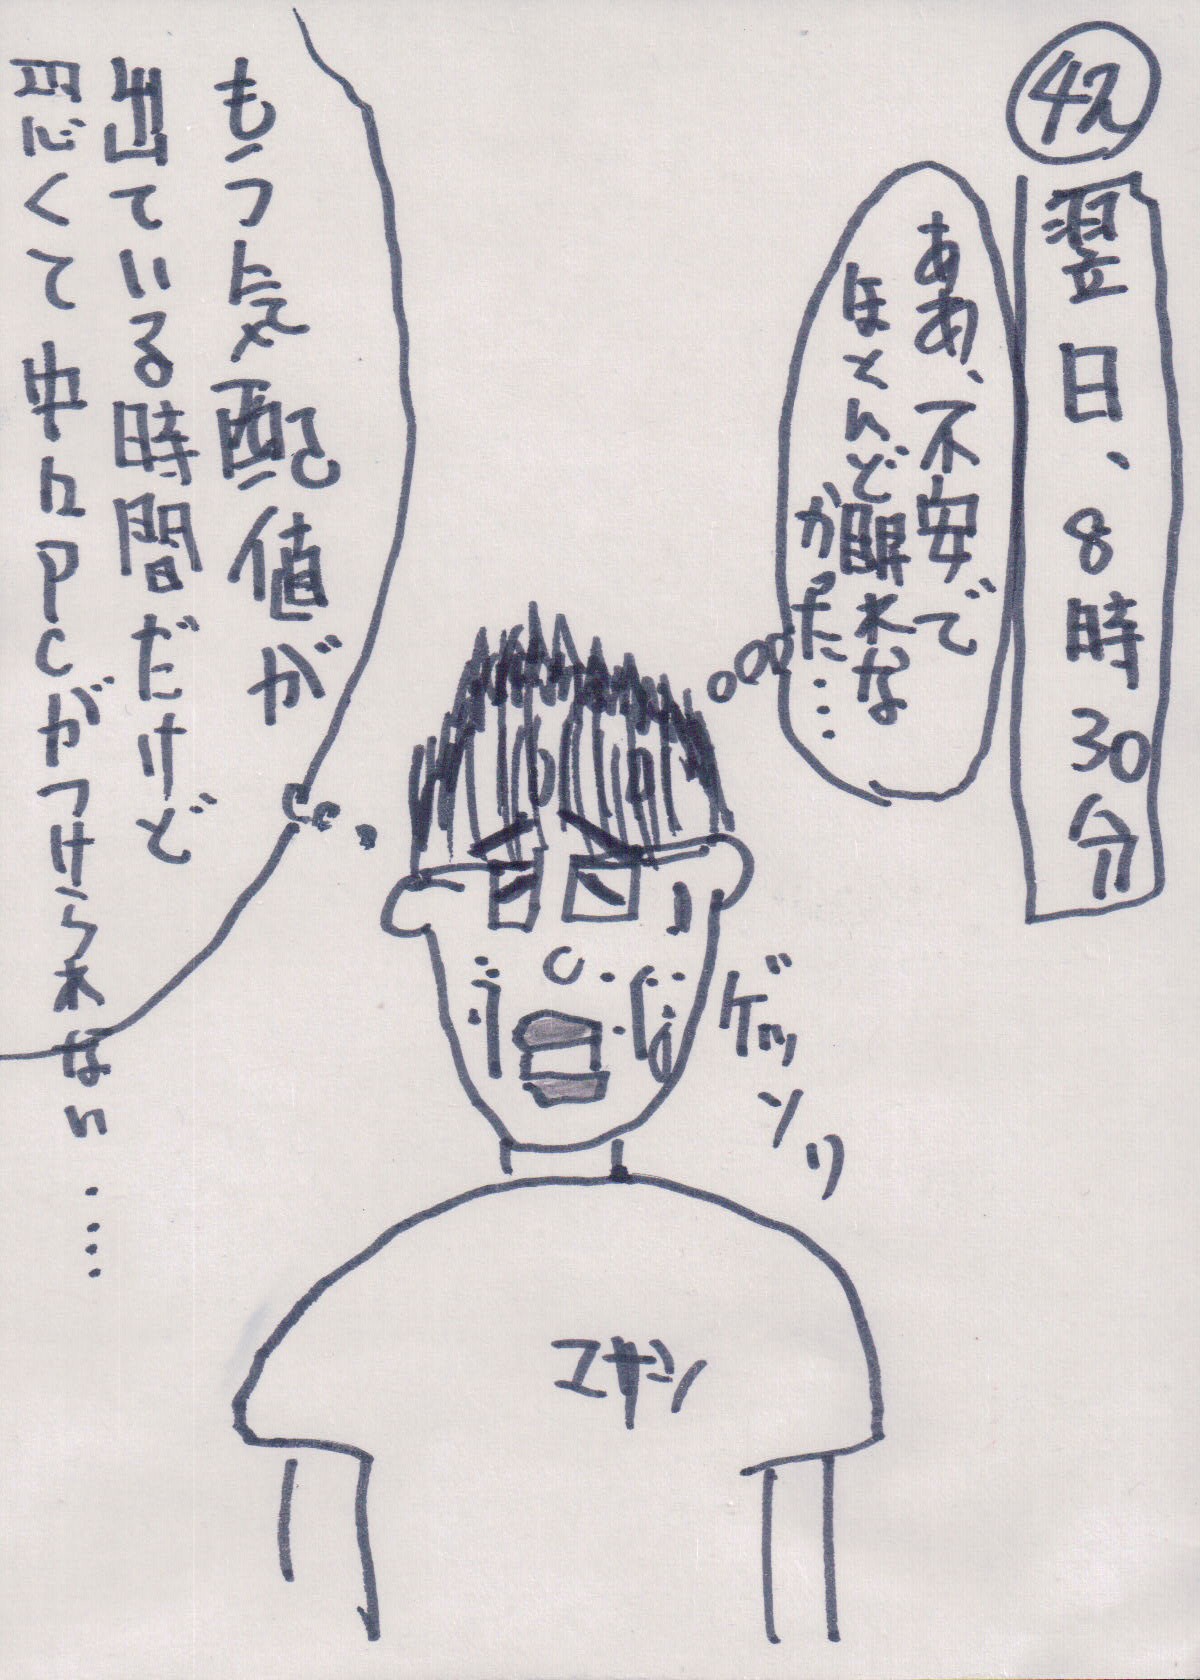 42
翌日、8時30分
ああ、不安で
ほとんど眠れな
かった…
もう気配値が
出ている時間だけど
恐くて中々PCがつけられない…
ゲッソリ
ユキン